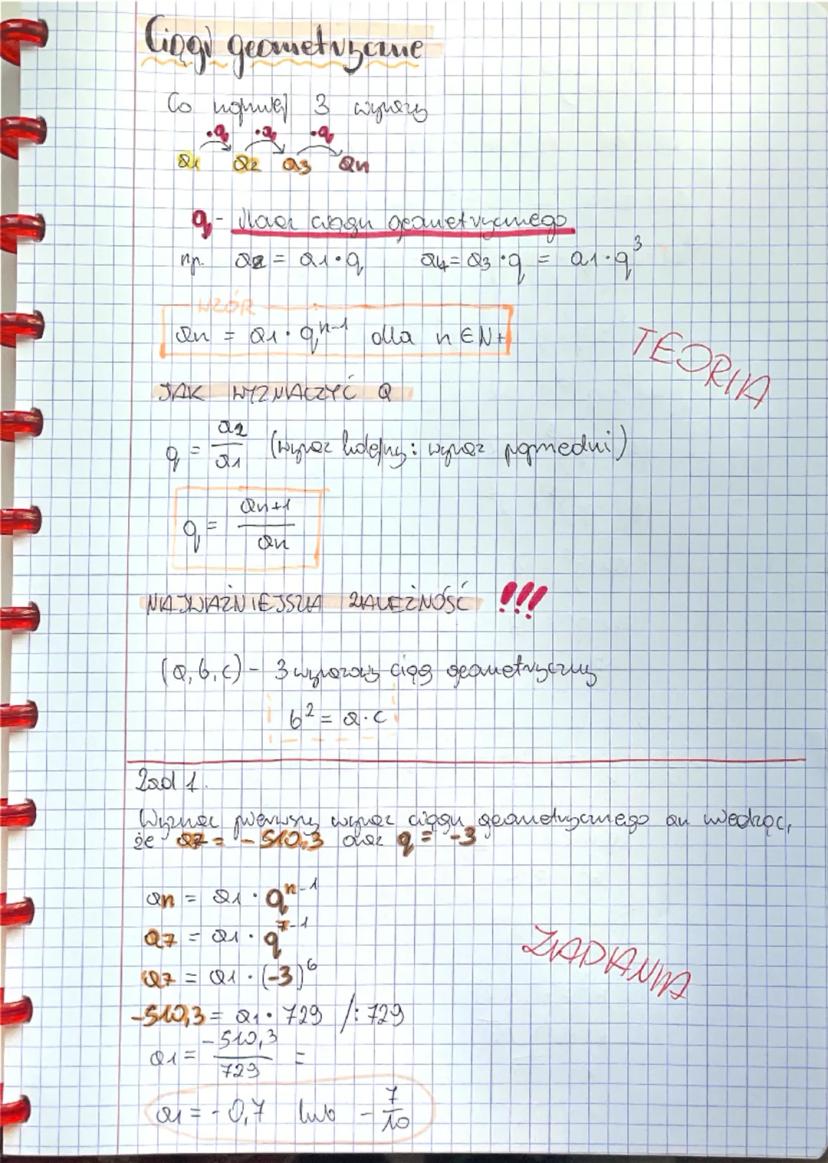 Ciągi geometryczne
Co najmniej 3 wyrazy
·q ·q ·q
a1 a2 a3 an
q - iloraz ciągu geometrycznego
np. a2 = a1·q a4 = a3·q = a1·q³
WZÓR
an = a1·qⁿ⁻¹ dla n ∈ N+
TEORIA
JAK WYZNACZYĆ Q
q = a2/a1 (wyraz kolejny : wyraz poprzedni)
q = an+1/an
NAJWAŻNIEJSZA ZALEŻNOŚĆ !!!
(a, b, c) - 3 wyrazowy ciąg geometryczny
b² = a·c
Zad 1.
Wyznacz pierwszy wyraz ciągu geometrycznego an wiedząc,
że a7 = -510,3 oraz q = -3
an = a1 · qⁿ⁻¹
a7 = a1 · q⁷⁻¹
ZADANIA
a7 = a1 · (-3)⁶
-510,3 = a1 · 729 /: 729
a1 = -510,3/729 =
a1 = -0,7 lub -7/10